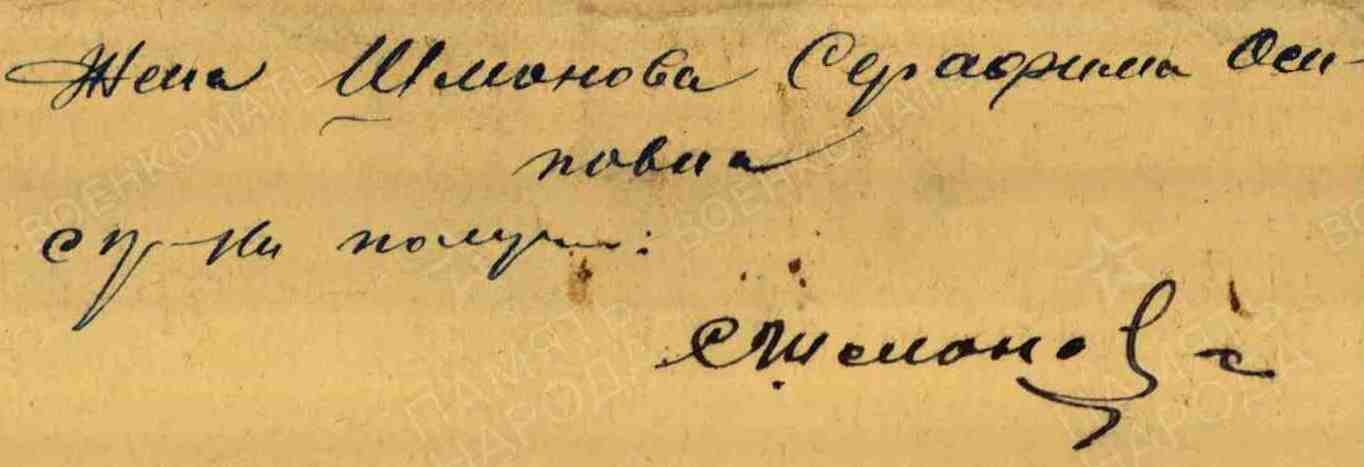 Жена Шмонова Серафима Оси-
повна
получ
СШмонова
ВОЕНКОМАТЫ
ПАМЯТЬ
НАРОДА